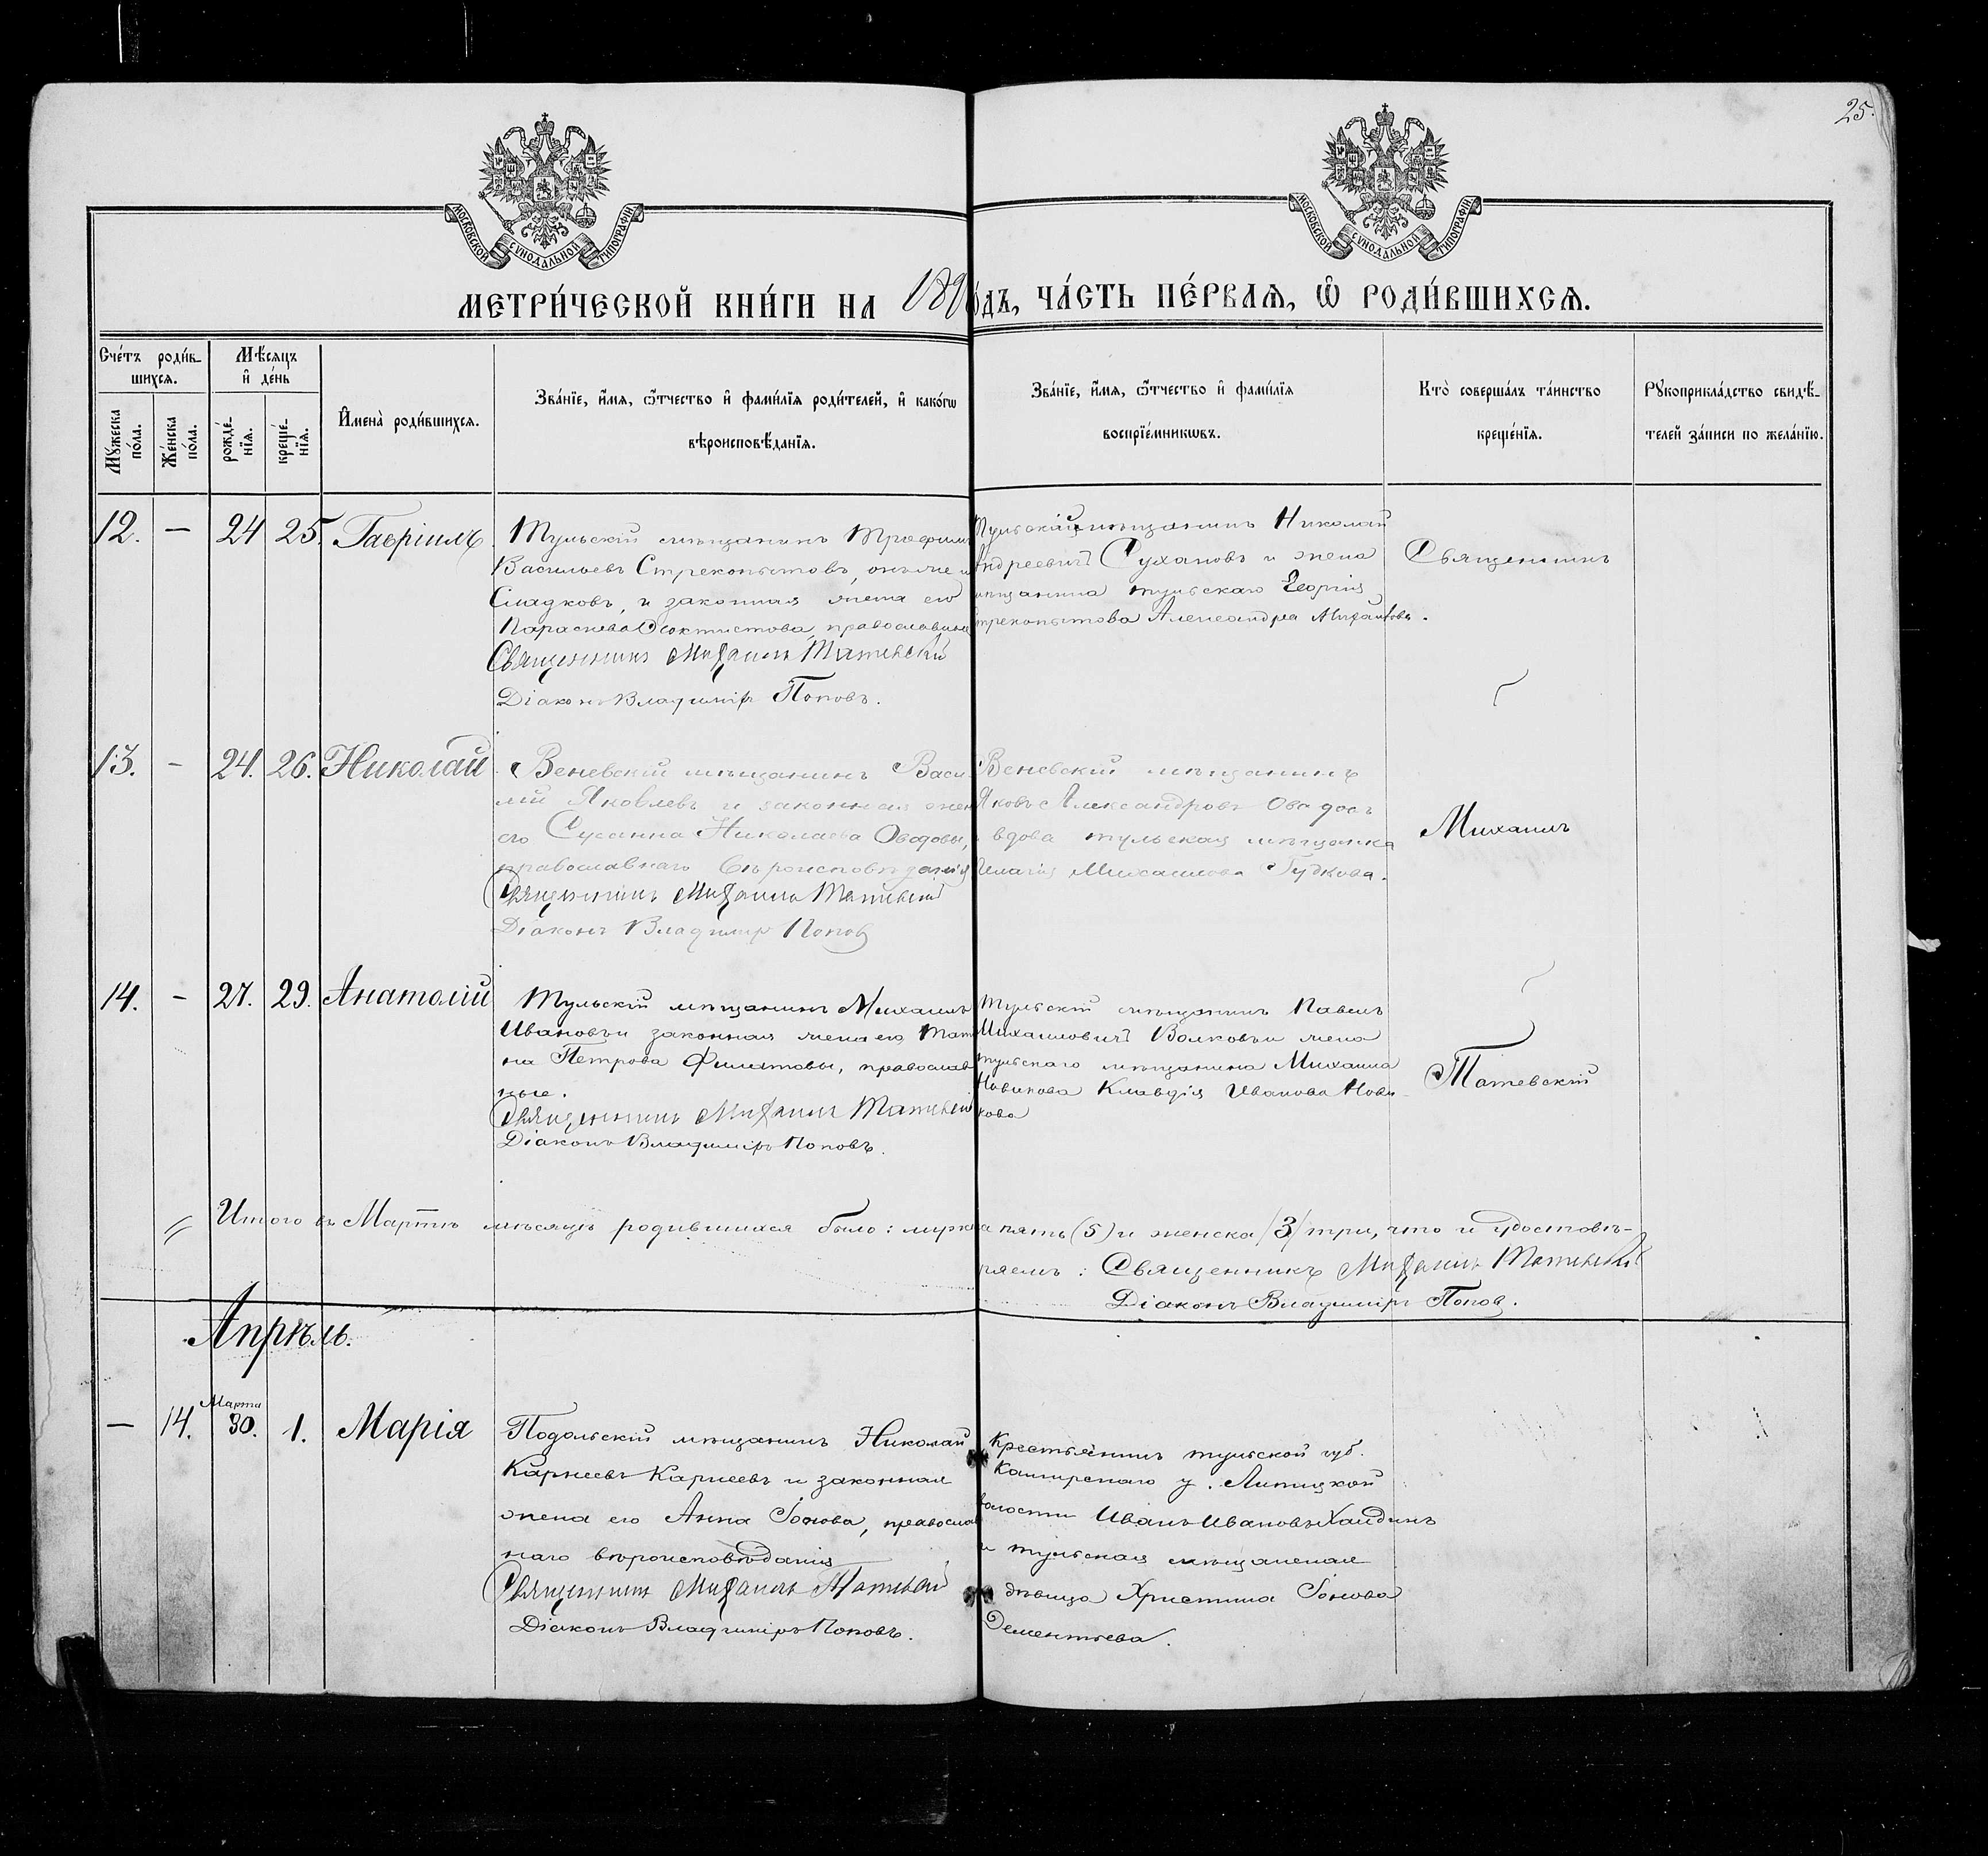 25.
МОСКОВСКОЙ СѴНОДАЛЬНОЙ ТИПОГРАФІИ
МОСКОВСКОЙ СѴНОДАЛЬНОЙ ТИПОГРАФІИ
МЕТРИ́ЧЕСКОЙ КНИ́ГИ НА 189 ОДЪ, ЧА́СТЬ ПЕ́РВАѦ, Ѽ РОДИ́ВШИХСѦ.
Сче́тъ роди́в-
шихсѧ.
Мꙋжеска по́ла.
Же́нска по́ла.
Мѣ́сѧцъ
и҆ де́нь
рожде́-
нїѧ.
креще́-
нїѧ.
И҆мена̀ роди́вшихсѧ.
Зва́нїе, и҆́мѧ, ѻ҆́тчество и҆ фами́лїѧ роди́телей, и҆ како́гѡ
вѣроисповѣ́данїѧ.
Зва́нїе, и҆́мѧ, ѻ҆́тчество и҆ фами́лїѧ
воспрїе́мникѡвъ.
Кто̀ соверша́лъ та́инство
креще́нїѧ.
Рꙋкоприкла́дство свидѣ́-
телей за́писи по жела́нїю.
12. — 24 25. Гавріилъ
Тульскій мѣщанинъ Трофимъ
Васильевъ Стрекопытовъ, онъ же и
Сладковъ, и законная жена его
Параскева Ѳеоктистова, православные
Священникъ Михаилъ Татевскій
Діаконъ Владиміръ Поповъ.
Тульскій мѣщанинъ Николай
Андреевичъ Сухановъ и жена
мѣщанина тульскаго Георгія
Стрекопытова Александра Михайлова.
Священникъ
13. — 24. 26. Николай
Веневскій мѣщанинъ Васи-
лій Яковлевъ и законная жена
его Сусанна Николаева Ободовы,
православнаго вѣроисповѣданія
Священникъ Михаилъ Татевскій
Діаконъ Владиміръ Поповъ
Веневскій мѣщанинъ
Яковъ Александровъ
и вдова тульская мѣщанка
Пелагія Михаилова Гудкова.
Михаилъ
14. — 27. 29. Анатолій
Тульскій мѣщанинъ Михаилъ
Ивановъ и законная жена его Тать
на Петрова Филатовы, православ
ные.
Священникъ Михаилъ Татевскій
Діаконъ Владиміръ Поповъ.
Тульскій мѣщанинъ Павелъ
Михаиловичъ Волковъ и жена
тульскаго мѣщанина Михаила
Новикова Клавдія Иванова Нови-
кова
Татевскій
Итого въ Мартѣ мѣсяцѣ родившихся было: мужска пять (5) и женска /3/ три, что и удостовѣ-
ряемъ: Священникъ Михаилъ Татевскій
Діаконъ Владиміръ Попов.
Апрѣль.
— 14. Марта 30. 1. Марія
Подольскій мѣщанинъ Николай
Карнеевъ Карнеевъ и законная
жена его Анна Іонова, православ
наго вѣроисповѣданія
Священникъ Михаилъ Татевскій
Діаконъ Владиміръ Поповъ.
Крестьянинъ тульской губ.
Каширскаго у. Липицкой
волости Иванъ Ивановъ
и тульская мѣщанская
дѣвица Христина Іонова
Дементьева.